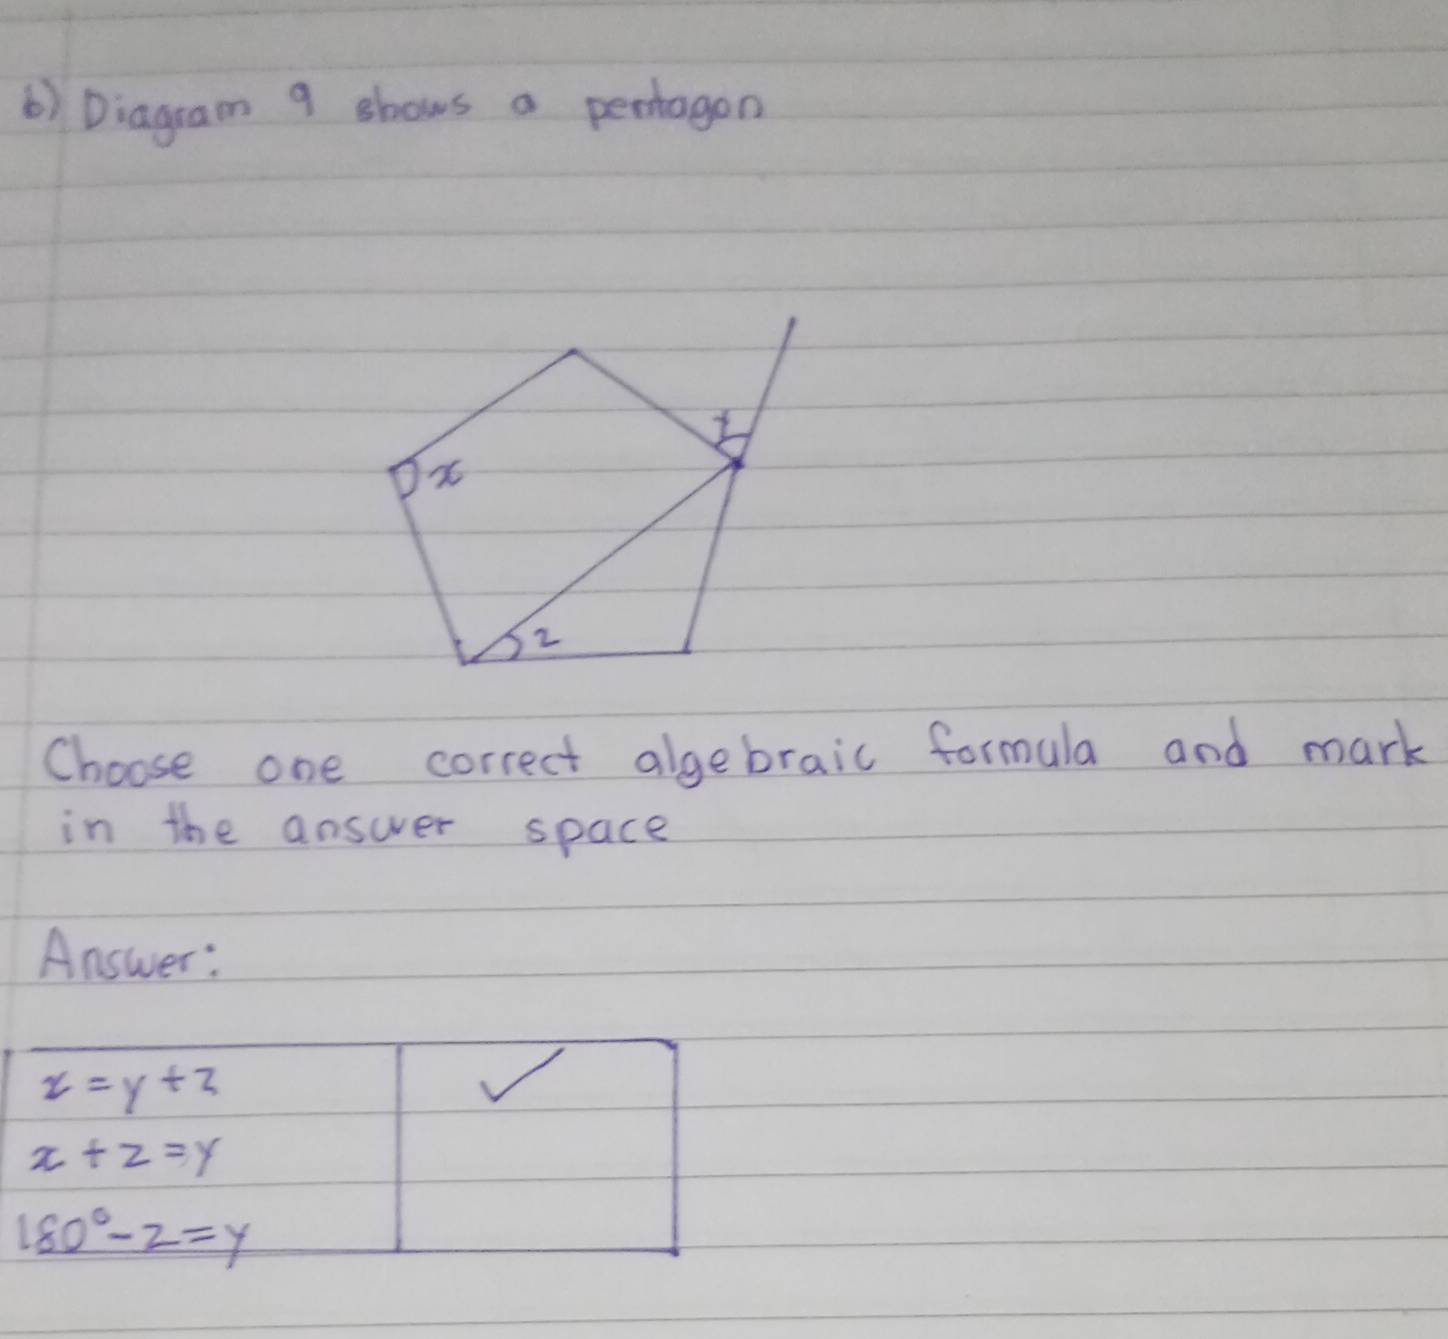 b) Diagram 9 shows a pentagon
y
x
z
Choose one correct algebraic formula and mark
in the answer space
Answer:
x = y + z ✓
x + z = y
180° - z = y